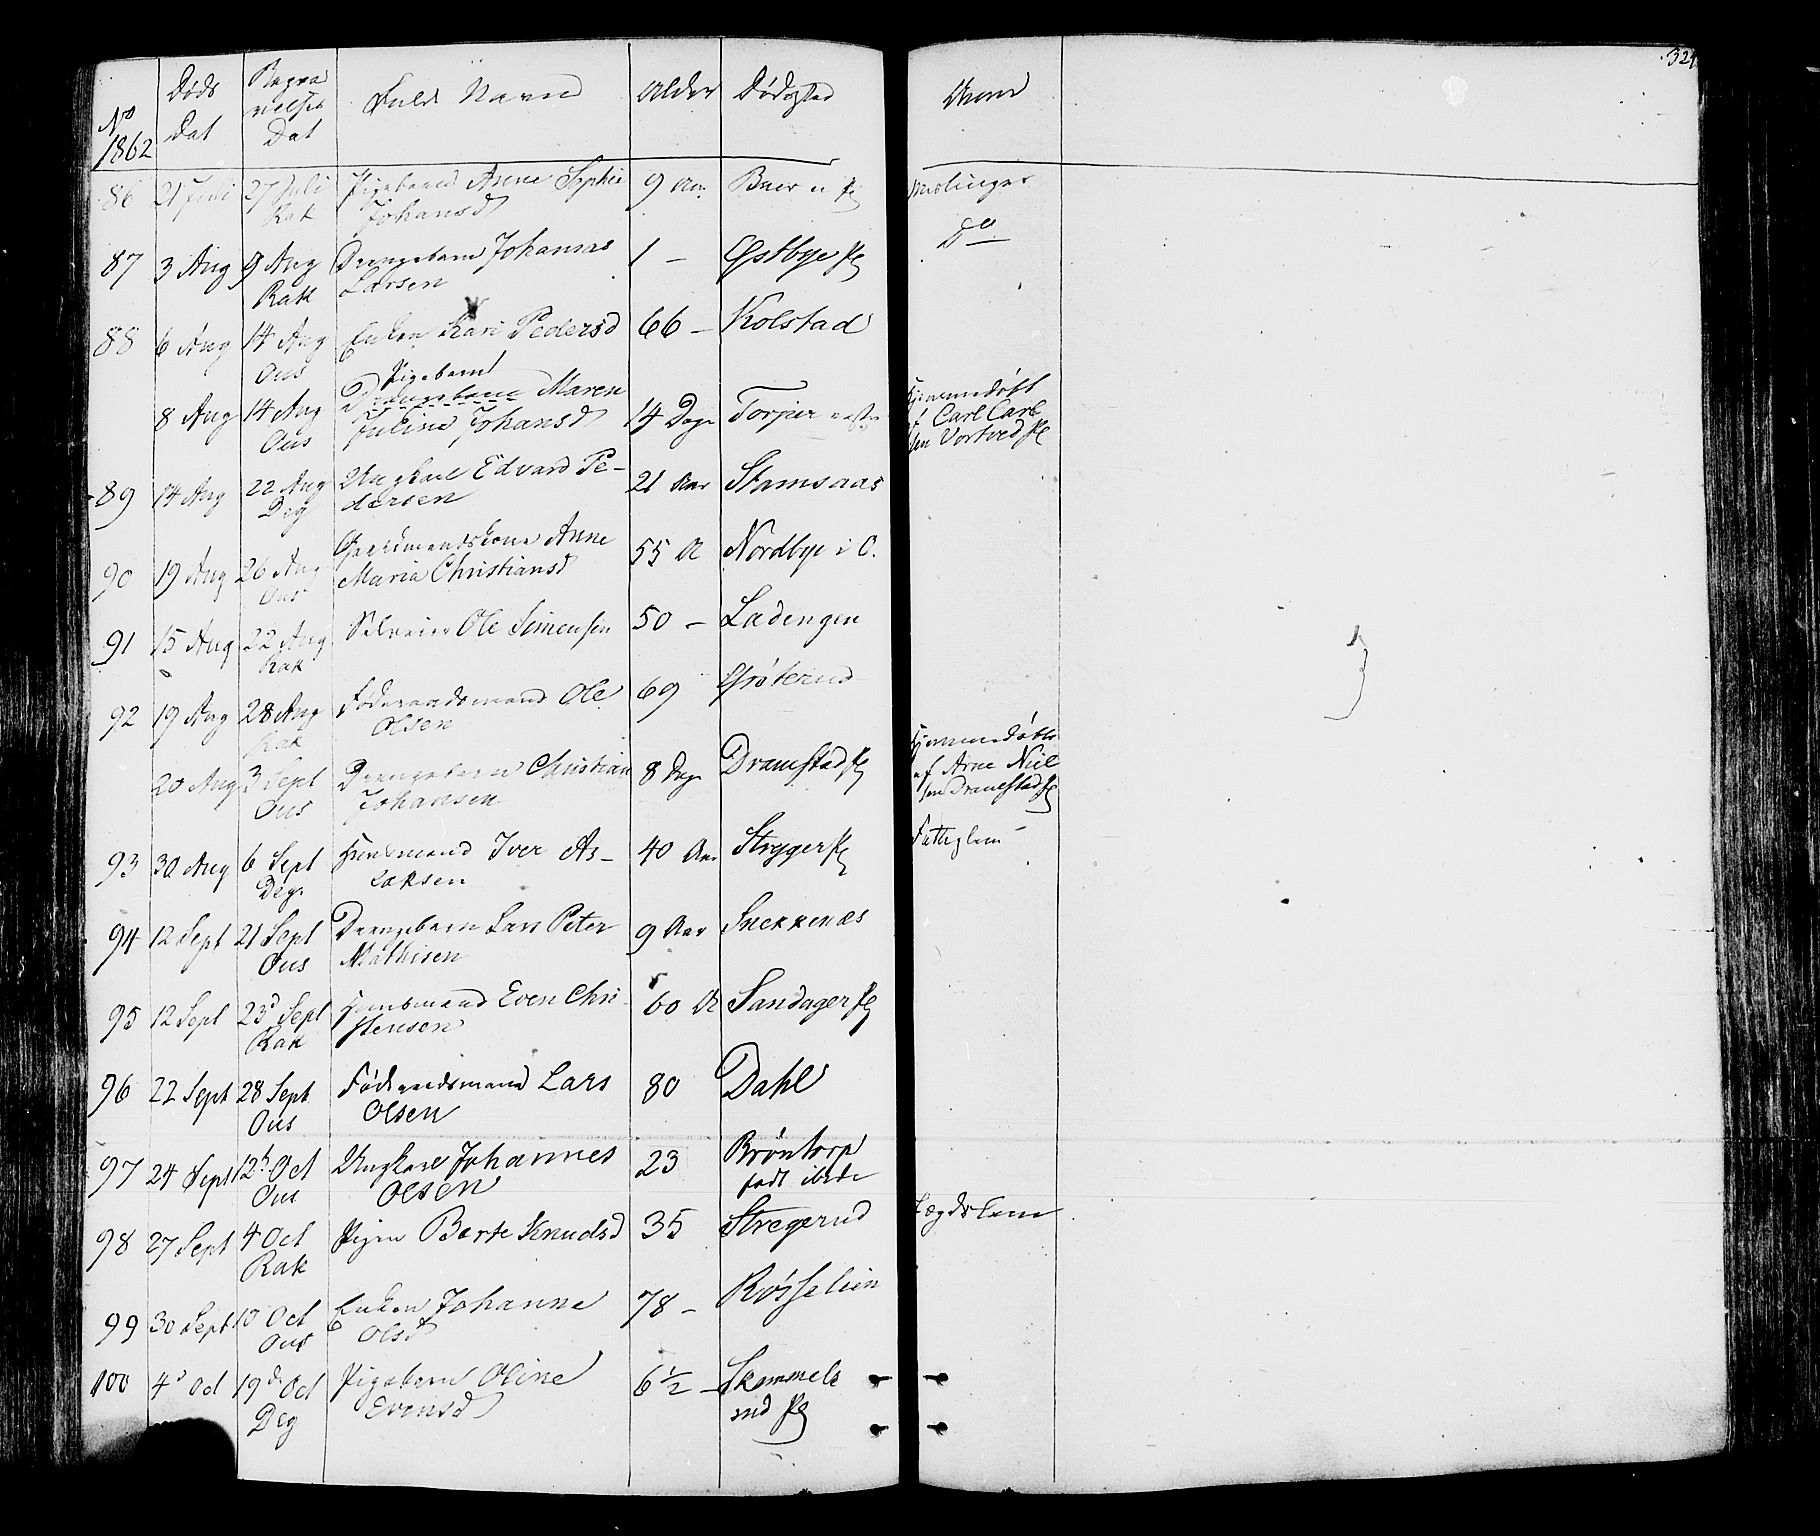 324
No 1862 Døds Dat Begravelses Dat Fulde Navn Alder Dødssted Anm
86 21 Juli 27 Juli Rak Pigebarn Anne Sophie Johansd 9 Aar Baer Mæslinger
87 3 Aug 9 Aug Rak Drengebarn Johannes Larsen 1 – Østbye Do
88 6 Aug 14 Aug Ous Enken Kari Pedersd 66 – Kolstad
8 Aug 14 Aug Ous Pigebarn Drengebarn Maren Juline Johansd 14 Dage Torper Hjemmedøbt af Carl Carlsen Vortved
89 14 Aug 22 Aug Deg Ungkarl Edvard Pedersen 21 Aar Stamsaas
90 19 Aug 26 Aug Ous Gaardmandskone Anne Maria Christiansd 55 A Nordbye i O.
91 15 Aug 22 Aug Rak Selveier Ole Simensen 50 – Ladengen
92 19 Aug 28 Aug Rak Føderaadsmand Ole Olsen 69 Grøterud
20 Aug 3 Sept Ous Drengebarn Christian Johansen 8 Dage Dramstad Hjemmedøbt af Arne Nielsen Dramstad
93 30 Aug 6 Sept Deg. Huusmand Iver Aslaksen 40 Aar Stryger Fattiglem
94 12 Sept 21 Sept Ous Drengebarn Lars Peter Mathisen 9 Aar Snekkenæs
95 12 Sept 23d Sept Rak Huusmand Even Christensen 60 A Sandager
96 22 Sept 28 Sept Ous Føderaadsmand Lars Olsen 80 Dahl
97 24 Sept 12 Oct Ous Ungkarl Johannes Olsen 23 Brøntorp født ibid
98 27 Sept 4 Oct Rak Pigen Berte Knudsd 35 Stregerud Lægdslem
99 30 Sept 10 Oct Ous Enken Johanne Olsd 78 – Røsselien
100 4 Oct 19d Oct Deg Pigebarn Oline Evensd 6½ – Skammelsrud